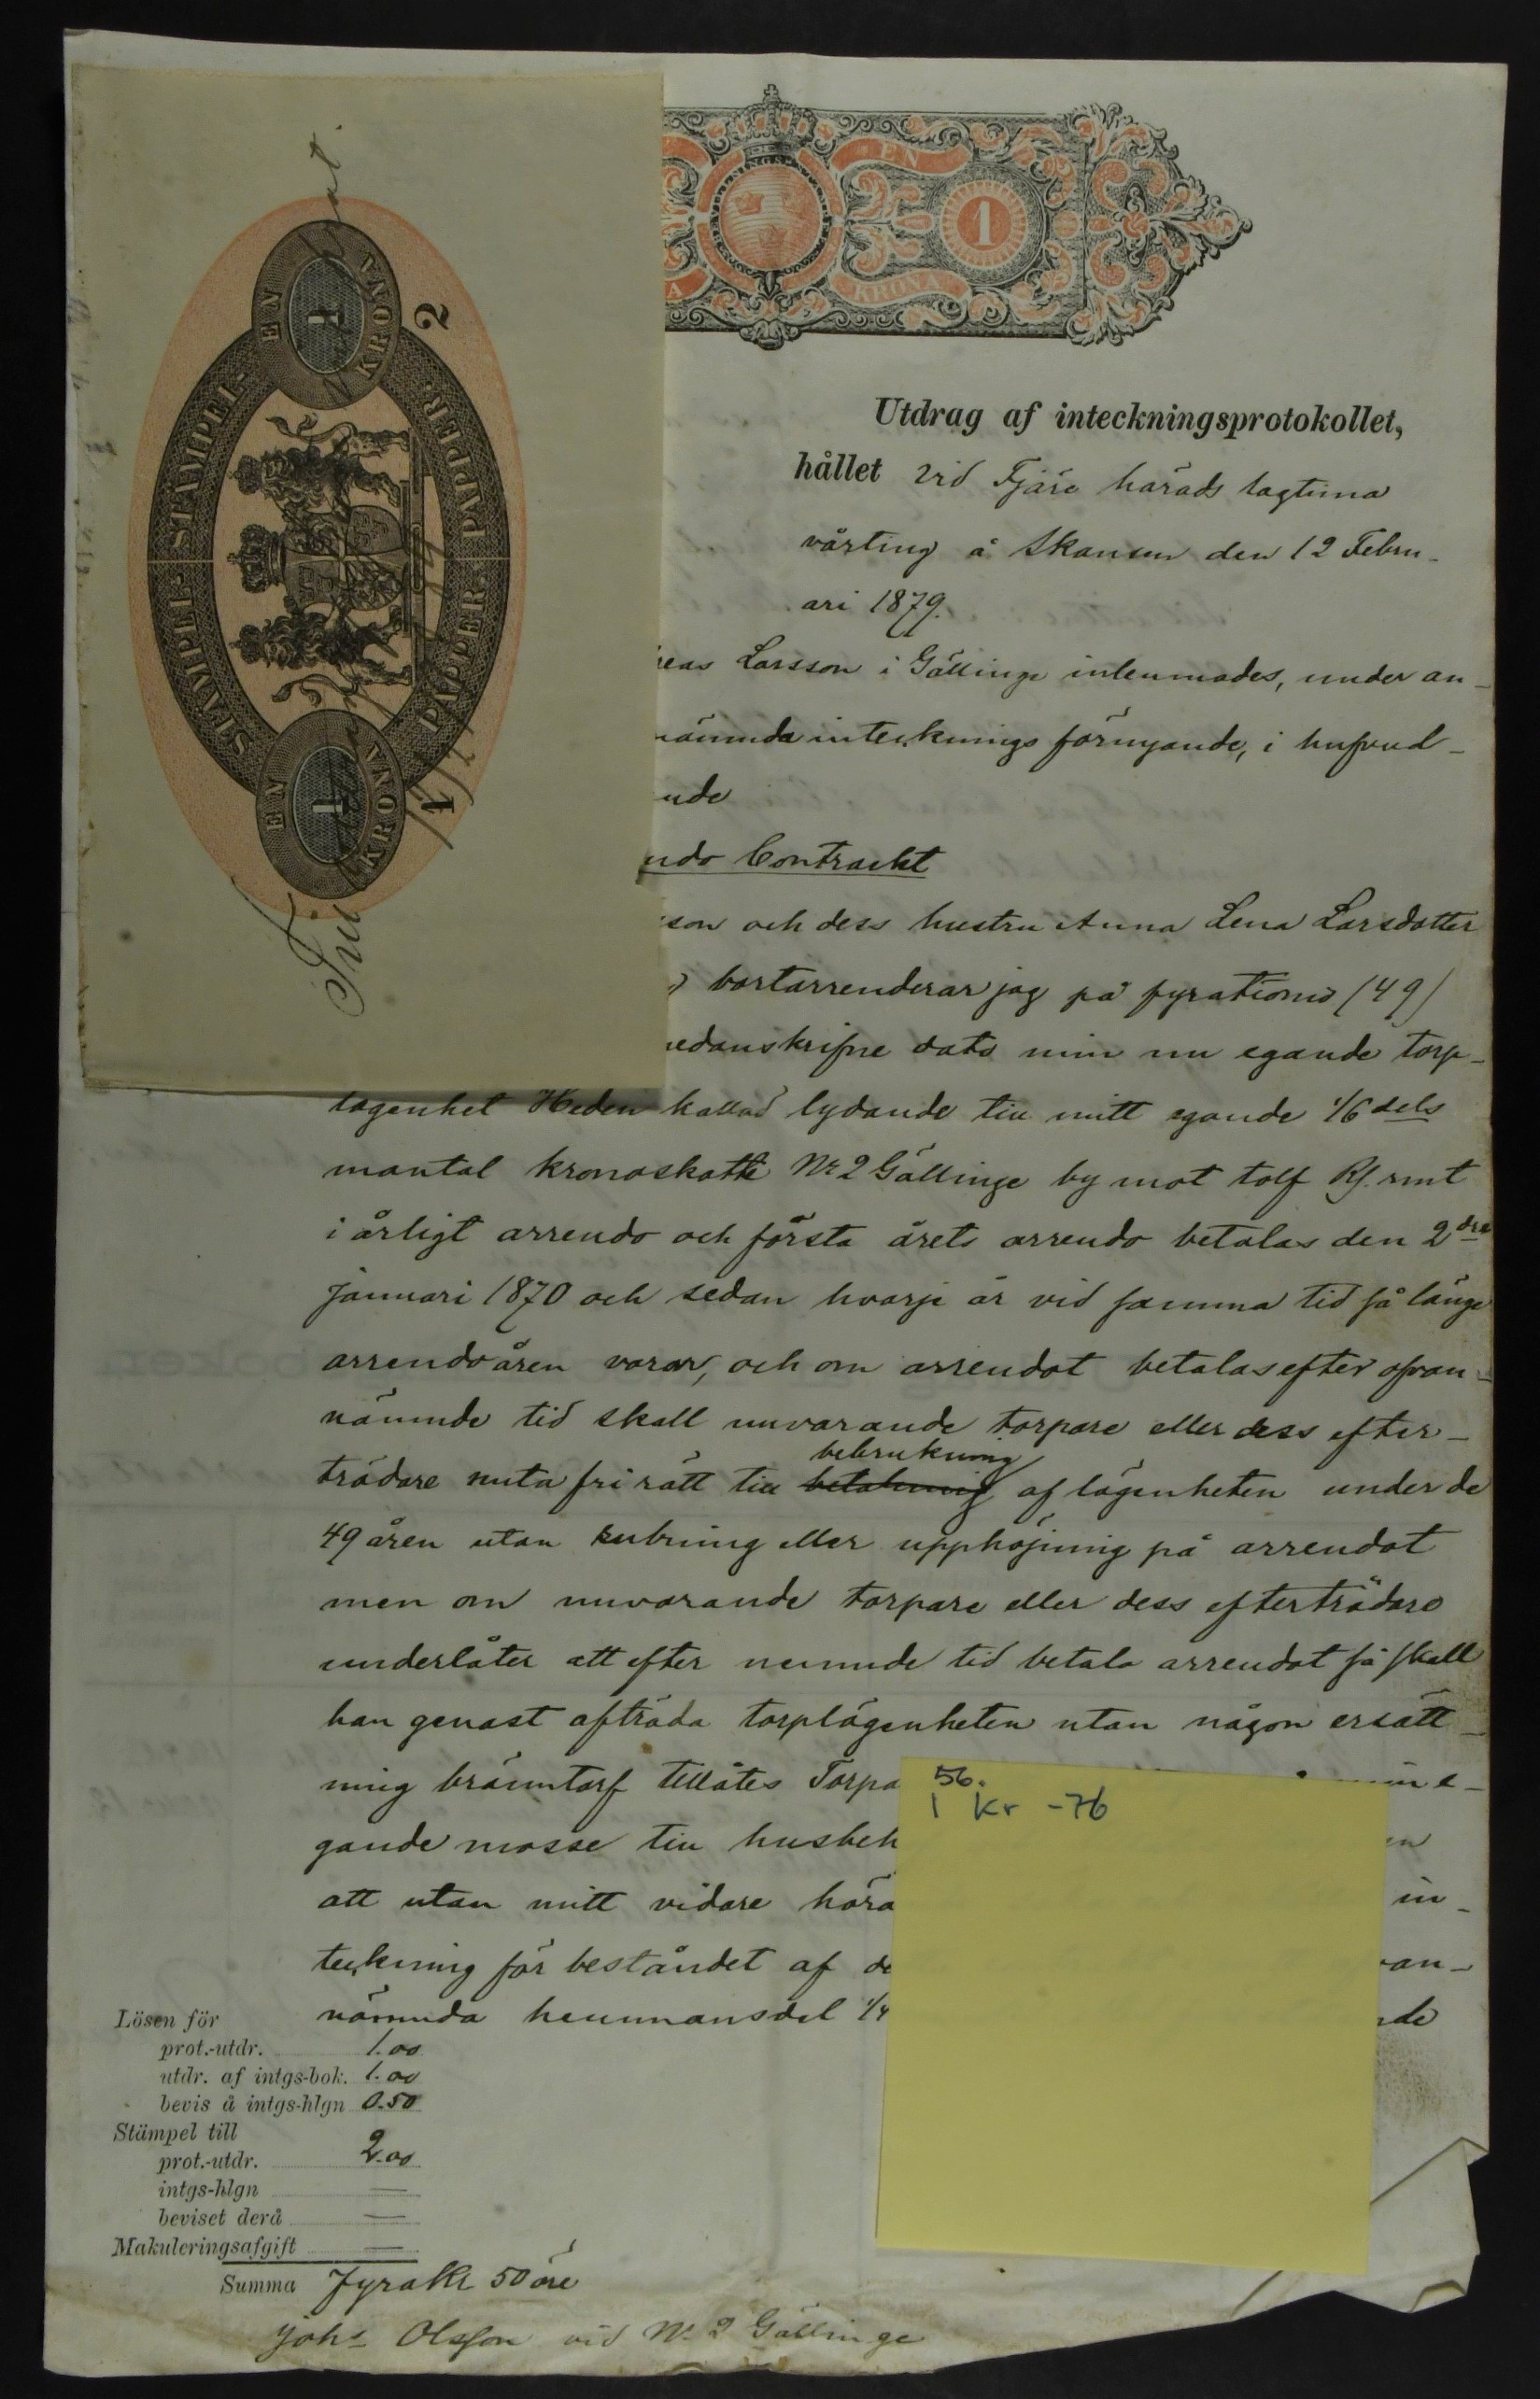 EN
KRONA
1
STÄMPEL- STÄMPEL-
PAPPER. PAPPER.
EN
1
KRONA
2
EN
1
KRONA
1
Utdrag af inteckningsprotokollet,
hållet vid Fjäre härads lagtima
vårting å Skansen den 12 Febru-
ari 1879.
reas Larsson i Gällinge inlemnades, under an-
nämnda intecknings förnyande, i hufvud-
ude
ndo Contrackt
sson och dess hustru Anna Lena Larsdotter
bortarrenderar jag på fyrationio (49)
nedanskrifne dato min nu egande torp-
lägenhet Heden kallad lydande till mitt egande 1/6 dels
mantal kronoskatte No 2 Gällinge by mot tolf Rd. rmt
i årligt arrende och första årets arrende betalas den 2dra
Januari 1870 och sedan hvarje år vid samma tid så länge
arrendeåren varar, och om arrendet betalas efter ofvan-
nämnde tid skall nuvarande torpare eller dess efter-
bebrukning
trädare nuta fri rätt till betalning af lägenheten under de
49 åren utan rubning eller upphöjning på arrendet
men om nuvarande torpare eller dess efterträdare
underlåter att efter nemnde tid betala arrendet så skall
han genast afträda torplägenheten utan någon ersätt-
ning bränntorf tillåtes Torpa min e-
gande mosse till husbeh en
att utan mitt vidare höra in-
teckning för beståndet af de van-
nämnda hemmansdel 1/4 nde
56.
1 Kr -76
Lösen för
prot.-utdr. 1.00
utdr. af intgs-bok. 1.00
bevis å intgs-hlgn 0.50
Stämpel till
prot.-utdr. 2.00
intgs-hlgn —
beviset derå —
Makuleringsafgift —
Summa Fyra Kr 50 öre
Johs Olsson vid No 2 Gällinge